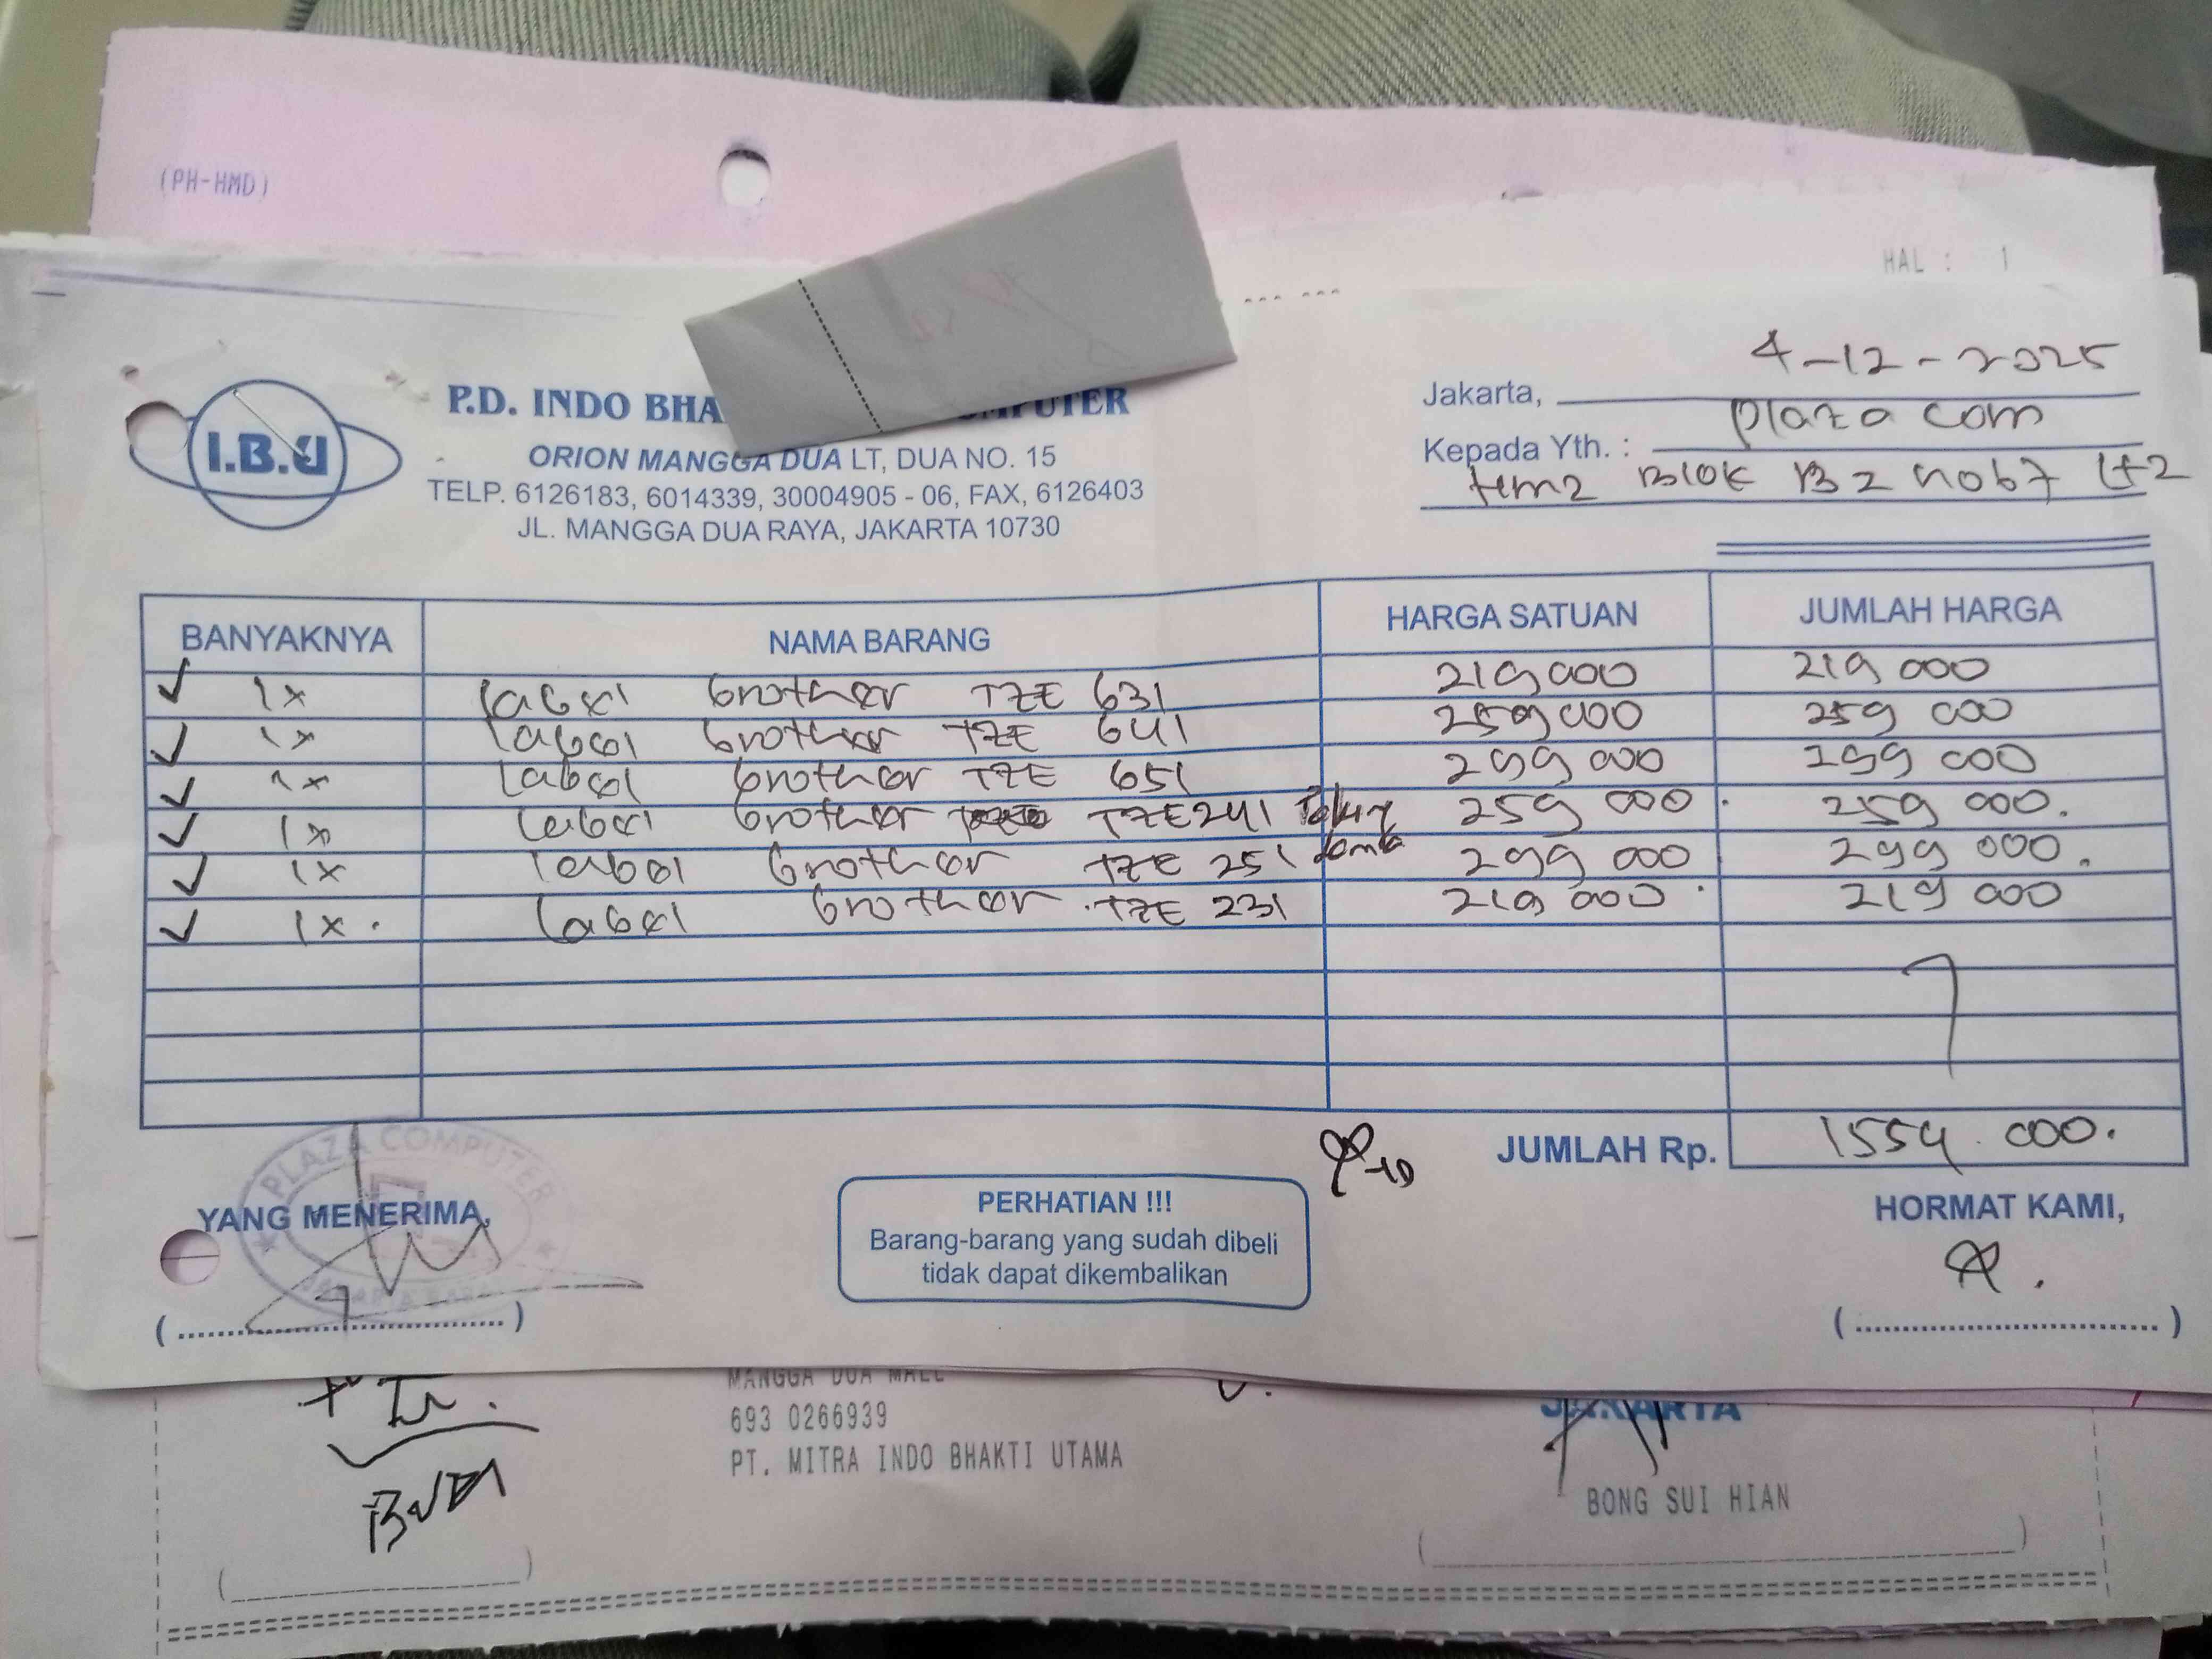 (PH-HMD)
HAL : 1
I.B.U
P.D. INDO BHA COMPUTER
ORION MANGGA DUA LT, DUA NO. 15
TELP. 6126183, 6014339, 30004905 - 06, FAX, 6126403
JL. MANGGA DUA RAYA, JAKARTA 10730
Jakarta, 4-12-2025
Kepada Yth. : plaza com
Blok B2 no 67 Lt 2
BANYAKNYA NAMA BARANG HARGA SATUAN JUMLAH HARGA
1x label brother TZE 631 219 000 219 000
1x label brother TZE 641 259 000 259 000
1x label brother TZE 651 299 000 299 000
1x label brother TZE 241 259 000 259 000.
1x label brother TZE 251 299 000 299 000.
1x. label brother TZE 231 219 000 219 000
JUMLAH Rp. 1554.000.
PLAZA COMPUTER
YANG MENERIMA,
PERHATIAN !!!
Barang-barang yang sudah dibeli
tidak dapat dikembalikan
HORMAT KAMI,
MANGGA DUA MALL
693 0266939
PT. MITRA INDO BHAKTI UTAMA
JAKARTA
BONG SUI HIAN